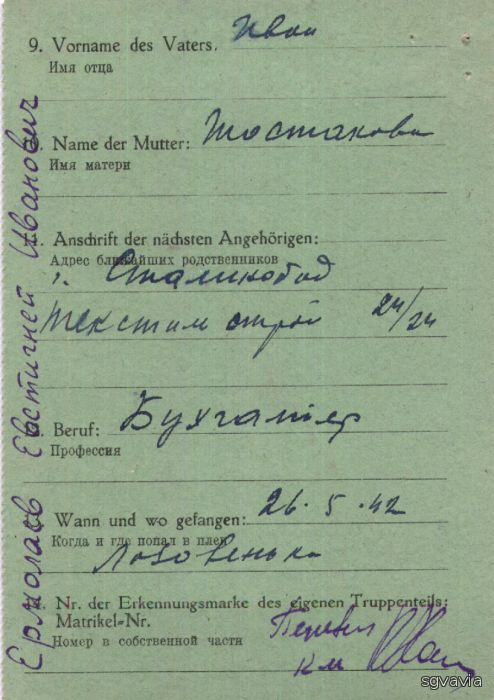 9. Vorname des Vaters. Иван
Имя отца
Name der Mutter: Шостакова
Имя матери
Anschrift der nächsten Angehörigen:
Адрес ближайших родственников
г. Сталинобад
Текстим строй 24/24
Beruf: Бухгалтер
Профессия
Wann und wo gefangen: 26.5.42
Когда и где попал в плен
Лозовенька
Nr. der Erkennungsmarke des eigenen Truppenteils:
Matrikel-Nr.
Номер в собственной части
Перевел
Ермолаев Евстигней Иванович
sgvavia